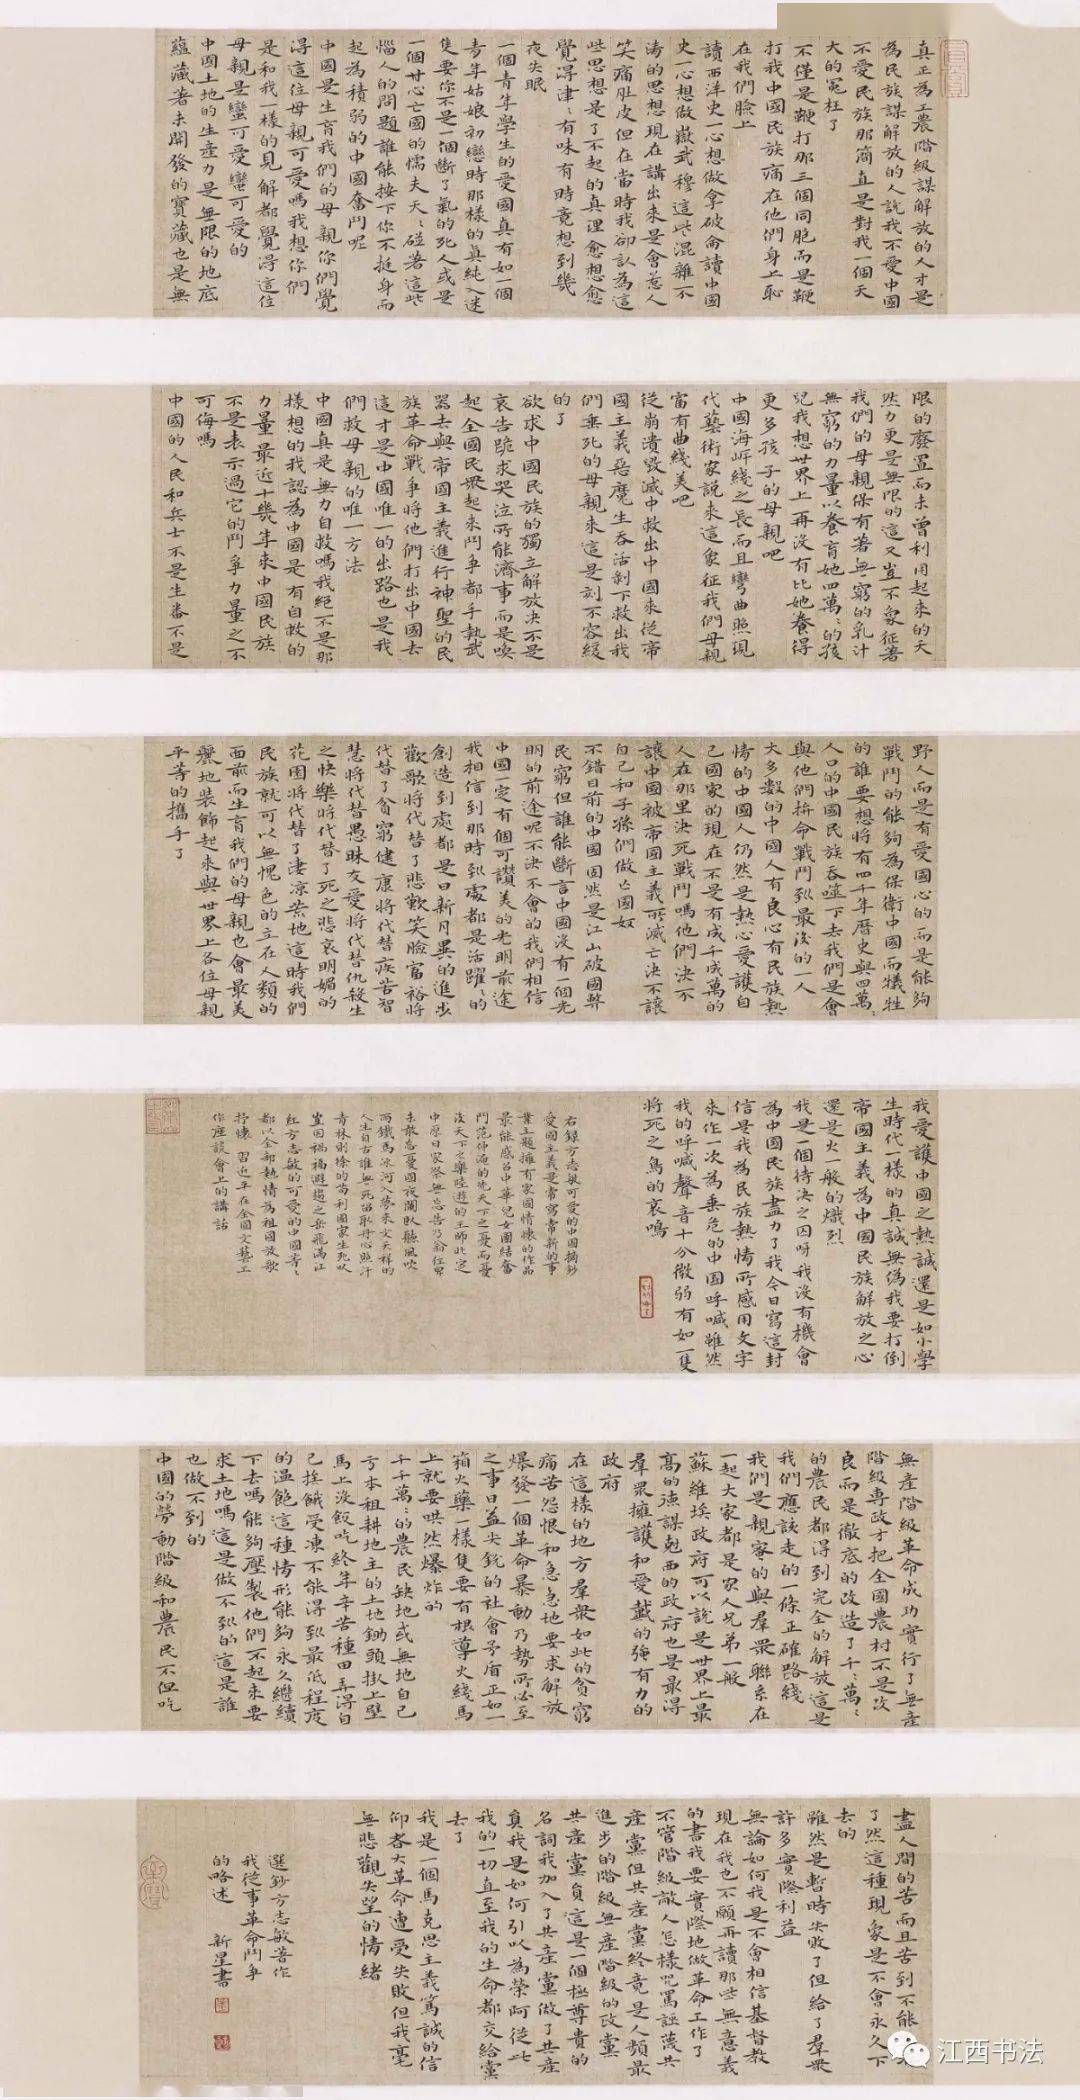 真正為工農階級謀解放的人才是
為民族謀解放的人說我不愛中國
不愛民族那簡直是對我一個天
大的冤枉了
不僅是鞭打那三個同胞而是鞭
打我中國民族痛在他們身上恥
在我們臉上
讀西洋史一心想做拿破侖讀中國
史一心想做嶽武穆這些混雜不
清的思想現在講出來是會惹人
笑痛肚皮但在當時我卻認為這
些思想是了不起的真理愈想愈
覺得津〻有味有時竟想到幾
夜失眠
一個青年學生的愛國真有如一個
青年姑娘初戀時那樣的真純入迷
隻要你不是一個斷了氣的死人或是
一個甘心亡國的懦夫天〻碰著這些
惱人的問題誰能按下你不挺身而
起為積弱的中國奮鬥呢
中國是生育我們的母親你們覺
得這位母親可愛嗎我想你們
是和我一樣的見解都覺得這位
母親是蠻可愛蠻可愛的
中國土地的生產力是無限的地底
蘊藏著未開發的寶藏也是無
限的廢置而未曾利用起來的天
然力更是無限的這又豈不象征著
我們的母親保有著無窮的乳汁
無窮的力量以養育她四萬〻的孩
兒我想世界上再沒有比她養得
更多孩子的母親吧
中國海岸綫之長而且彎曲照現
代藝術家說來這象征我們母親
富有曲綫美吧
從崩潰毀滅中救出中國來從帝
國主義惡魔生吞活剝下救出我
們垂死的母親來這是刻不容緩
的了
欲求中國民族的獨立解放决不是
哀告跪求哭泣所能濟事而是喚
起全國民眾起來鬥爭都手執武
器去與帝國主義進行神聖的民
族革命戰爭將他們打出中國去
這才是中國唯一的出路也是我
們救母親的唯一方法
中國真是無力自救嗎我絕不是那
樣想的我認為中國是有自救的
力量最近十幾年來中國民族
不是表示過它的鬥爭力量之不
可侮嗎
中國的人民和兵士不是生番不是
野人而是有愛國心的而是能夠
戰鬥的能夠為保衛中國而犧牲
的誰要想將有四千年曆史與四萬〻
人口的中國民族吞噬下去我們是會
與他們拚命戰鬥到最後的一人
大多數的中國人有良心有民族熱
情的中國人仍然是熱心愛護自
己國家的現在不是有成千成萬的
人在那里決死戰鬥嗎他們決不
讓中國被帝國主義所滅亡決不讓
自己和子孫們做亡國奴
不錯目前的中國固然是江山破國弊
民窮但誰能斷言中國沒有一個光
明的前途呢不決不會的我們相信
中國一定有個可讚美的光明前途
我相信到那時到處都是活躍〻的
創造到處都是日新月異的進步
歡歌將代替了悲歎笑臉富裕將
代替了貧窮健康將代替疾苦智
慧將代替愚昧友愛將代替仇殺生
之快樂將代替了死之悲哀明媚的
花園將代替了淒涼荒地這時我們
民族就可以無愧色的立在人類的
面前而生育我們的母親也會最美
麗地裝飾起來與世界上各位母親
平等的攜手了
我愛護中國之熱誠還是如小學
生時代一樣的真誠無偽我要打倒
帝國主義為中國民族解放之心
還是火一般的熾烈
我是一個待決之囚呀我沒有機會
為中國民族盡力了我今日寫這封
信是我為民族熱情所感用文字
來作一次為垂危的中國呼喊雖然
我的呼喊聲音十分微弱有如一隻
將死之鳥的哀鳴
右録方志敏可愛的中國摘鈔
愛國主義是常寫常新的事
業主題擁有家國情懷的作品
最能感召中華兒女團結奮
鬥范仲淹的先天下之憂而憂
後天下之樂陸遊的王師北定
中原日家祭無忘告乃翁位卑
未敢忘憂國夜闌臥聽風吹
雨鐵馬冰河入夢來文天祥的
人生自古誰無死留取丹心照汗
青林則徐的苟利國家生死以
豈因禍福避趨之岳飛滿江
紅方志敏的可愛的中國等〻
都以全部熱情為祖國放歌
抒懷 習近平在全國文藝工
作座談會上的講話
無產階級革命成功實行了無產
階級專政才把全國農村不是改
良而是徹底的改造了千〻萬〻
的農民都得到完全的解放這是
我們應該走的一條正確路綫
我們是親家的與羣眾聯系在
一起大家都是家人兄弟一般
蘇維埃政府可以說是世界上最
高的速謀剋西的政府也是最得
羣眾擁護和愛戴的強有力的
政府
在這樣的地方羣眾如此的貧窮
痛苦怨恨和急急地要求解放
爆發一個革命暴動乃勢所必至
之事日益尖銳的社會矛盾正如一
箱火藥一樣隻要有根導火綫馬
上就要哄然爆炸的
千千萬〻的農民缺地或無地自己
亏本租耕地主的土地鋤頭掛上壁
馬上沒飯吃終年辛苦種田弄得自
己挨餓受凍不能得到最低程度
的温飽這種情形能夠永久繼續
下去嗎能夠壓製他們不起來要
求土地嗎這是做不到的這是誰
也做不到的
中國的勞動階級和農民不但吃
盡人間的苦而且苦到不能
了然這種現象是不會永久下
去的
雖然是暫時失敗了但給了羣眾
許多實際利益
無論如何我是不會相信基督教
現在我也不願再讀那些無意義
的書我要實際地做革命工作了
不管階級敵人怎樣咒罵誣蔑共
產黨但共產黨終竟是人類最
進步的階級無產階級的政黨
共產黨員這是一個極尊貴的
名詞我加入了共產黨做了共產
員我是如何引以為榮阿從此
我的一切直至我的生命都交給黨
去了
我是一個馬克思主義篤誠的信
仰者大革命遭受失敗但我毫
無悲觀失望的情緒
選鈔方志敏著作
我從事革命鬥爭
的略述 新星書
江西书法